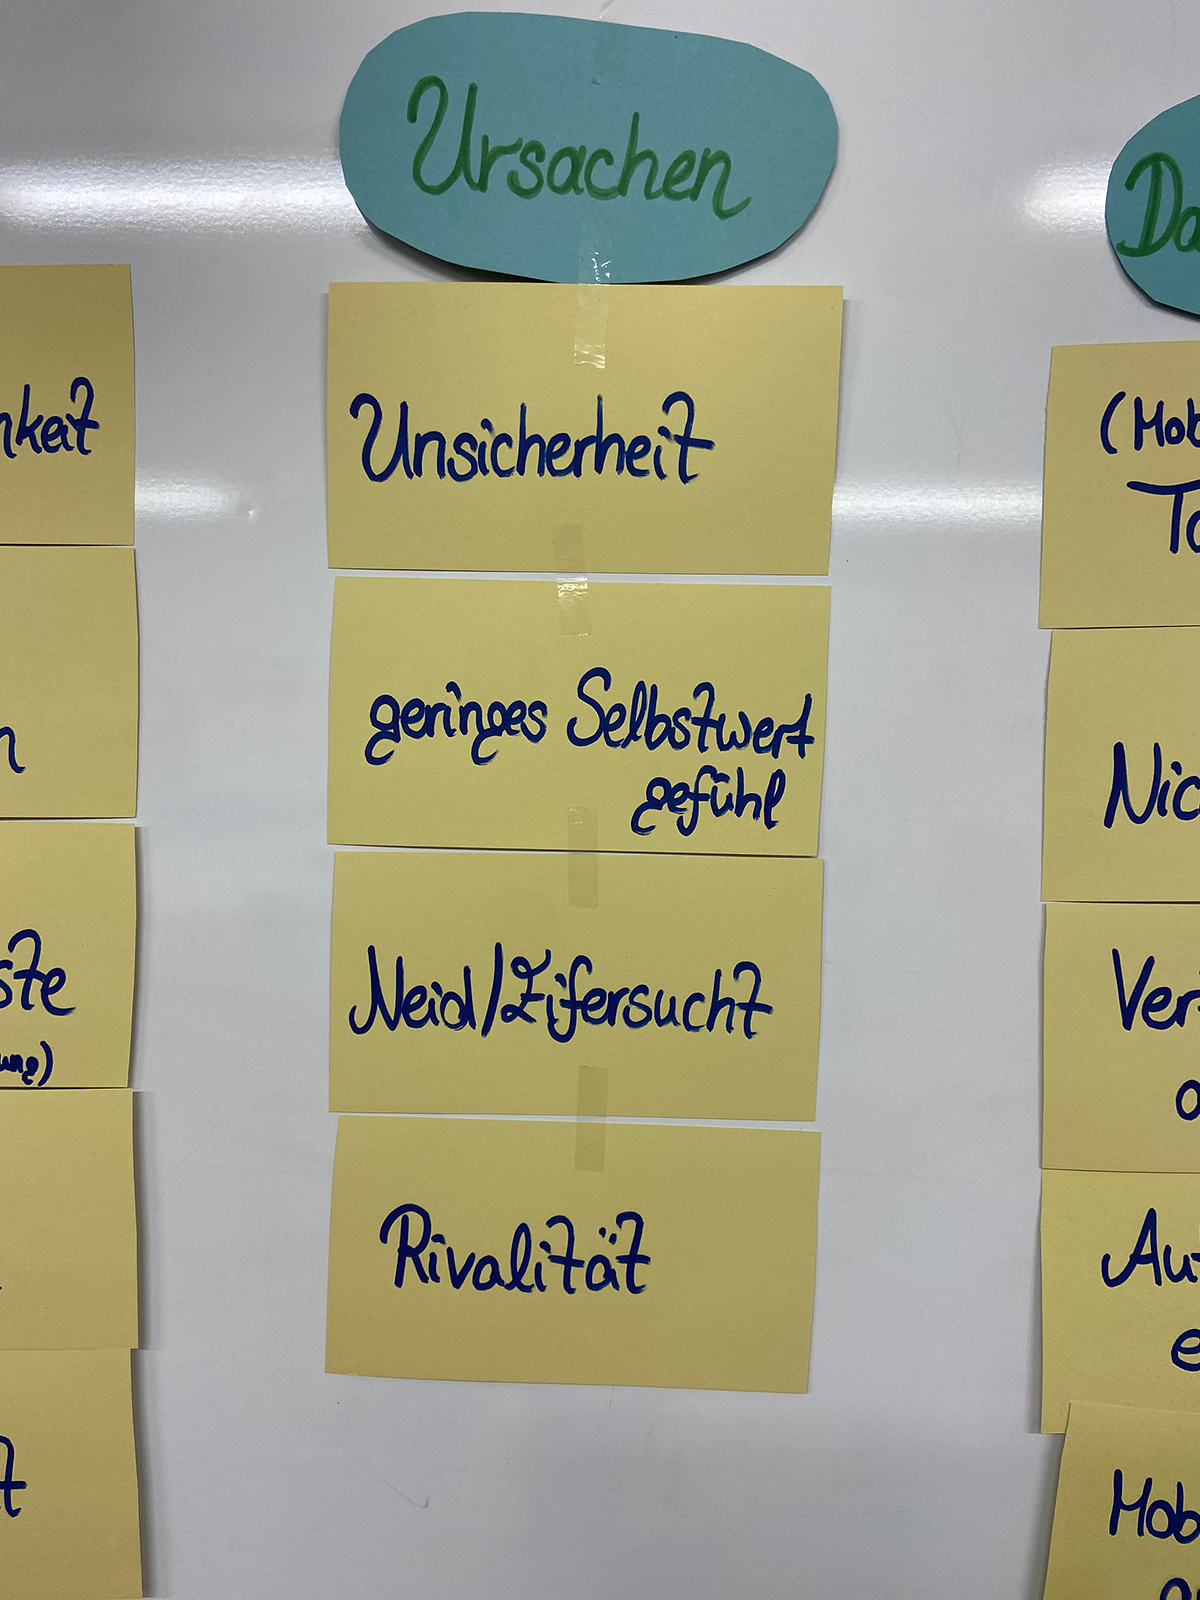 Ursachen
Unsicherheit
geringes Selbstwert
gefühl
Neid/Eifersucht
Rivalität
(Mob
Nic
Ver
Au
Mob